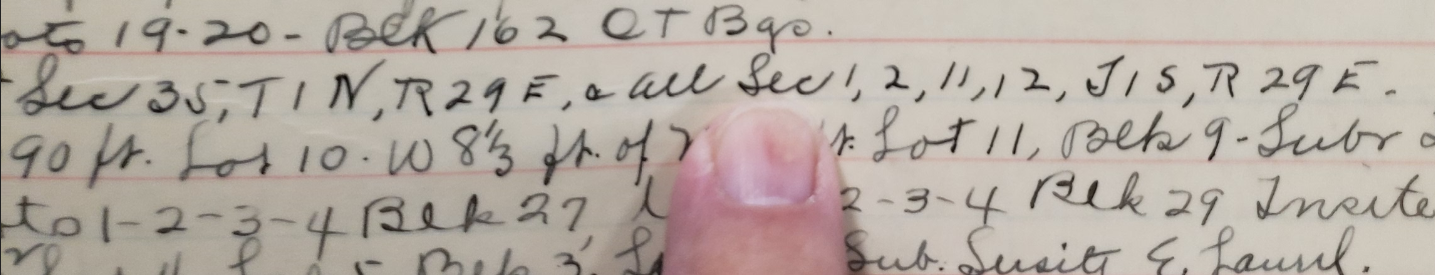 19-20 - Blk 162 OT Bgs.
Sec 35, T1N, R29E, & all Sec 1, 2, 11, 12, T1S, R29E.
90 ft. Lot 10. W 8⅓ ft. of Lot 11, Blk 9 - Subr
1-2-3-4 Blk 27, 2-3-4 Blk 29
Blk 3, Sub. E. Laurel.